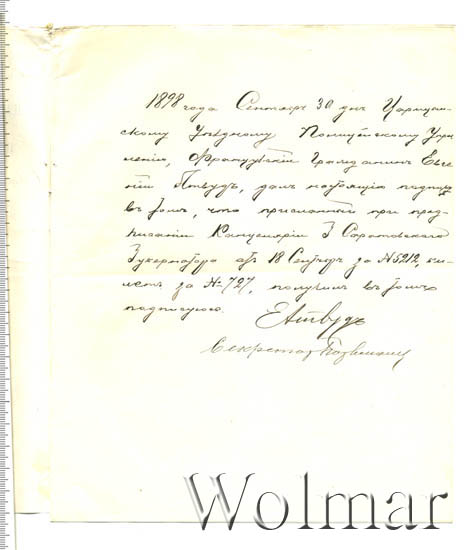 1898 года Сентябр 30 дня Царицын-
скому Уѣздному Полицейскому Упра
вленію, Французскій Гражданинъ Евге
ній Атвудъ, далъ настоящую подписку
въ томъ, что присланный при пред-
писаніи Канцеляріи Г. Саратовскаго
Губернатора отъ 18 Сентября за № 5212, би-
летъ за № 727, получилъ въ томъ
подписуюсь.
ЕАтвудъ
Секретарь
Wolmar